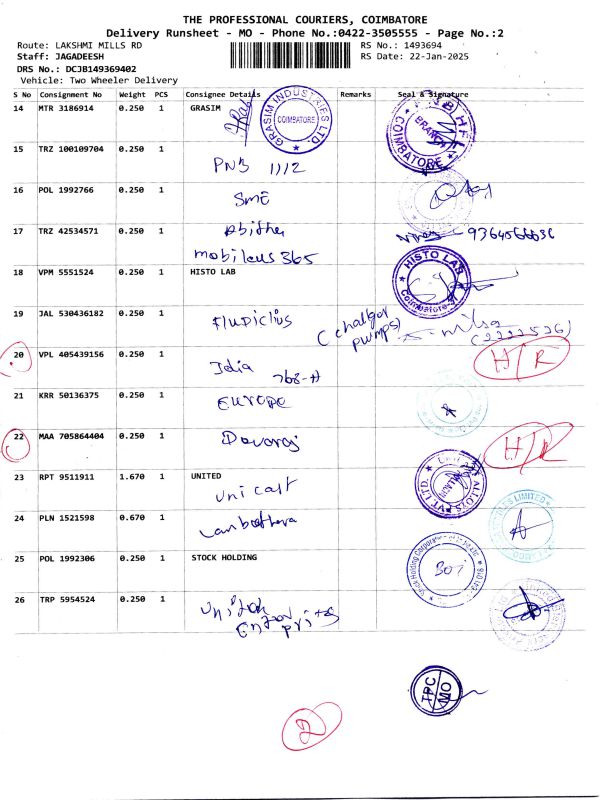 THE PROFESSIONAL COURIERS, COIMBATORE
Delivery Runsheet - MO - Phone No.:0422-3505555 - Page No.:2
Route: LAKSHMI MILLS RD RS No.: 1493694
Staff: JAGADEESH RS Date: 22-Jan-2025
DRS No.: DCJB149369402
Vehicle: Two Wheeler Delivery
S No Consignment No Weight PCS Consignee Details Remarks Seal & Signature
14 MTR 3186914 0.250 1 GRASIM
GRASIM INDUSTRIES LTD.
COIMBATORE
BRANCH
COIMBATORE
15 TRZ 100109704 0.250 1
PNB 1112
16 POL 1992766 0.250 1
SME
17 TRZ 42534571 0.250 1
mobileus 365
18 VPM 5551524 0.250 1 HISTO LAB
HISTO LAB
Coimbatore
19 JAL 530436182 0.250 1
(chalger pumps)
20 VPL 405439156 0.250 1 H/R
Idia
768-H
21 KRR 50136375 0.250 1
EUROPE
22 MAA 705864404 0.250 1 H/R
Devaraj
23 RPT 9511911 1.670 1 UNITED
Unicast
ALLOYS PVT. LTD.
24 PLN 1521598 0.670 1
LIMITED
25 POL 1992306 0.250 1 STOCK HOLDING
Stock Holding Corporation
301
26 TRP 5954524 0.250 1
TPC
MO
2